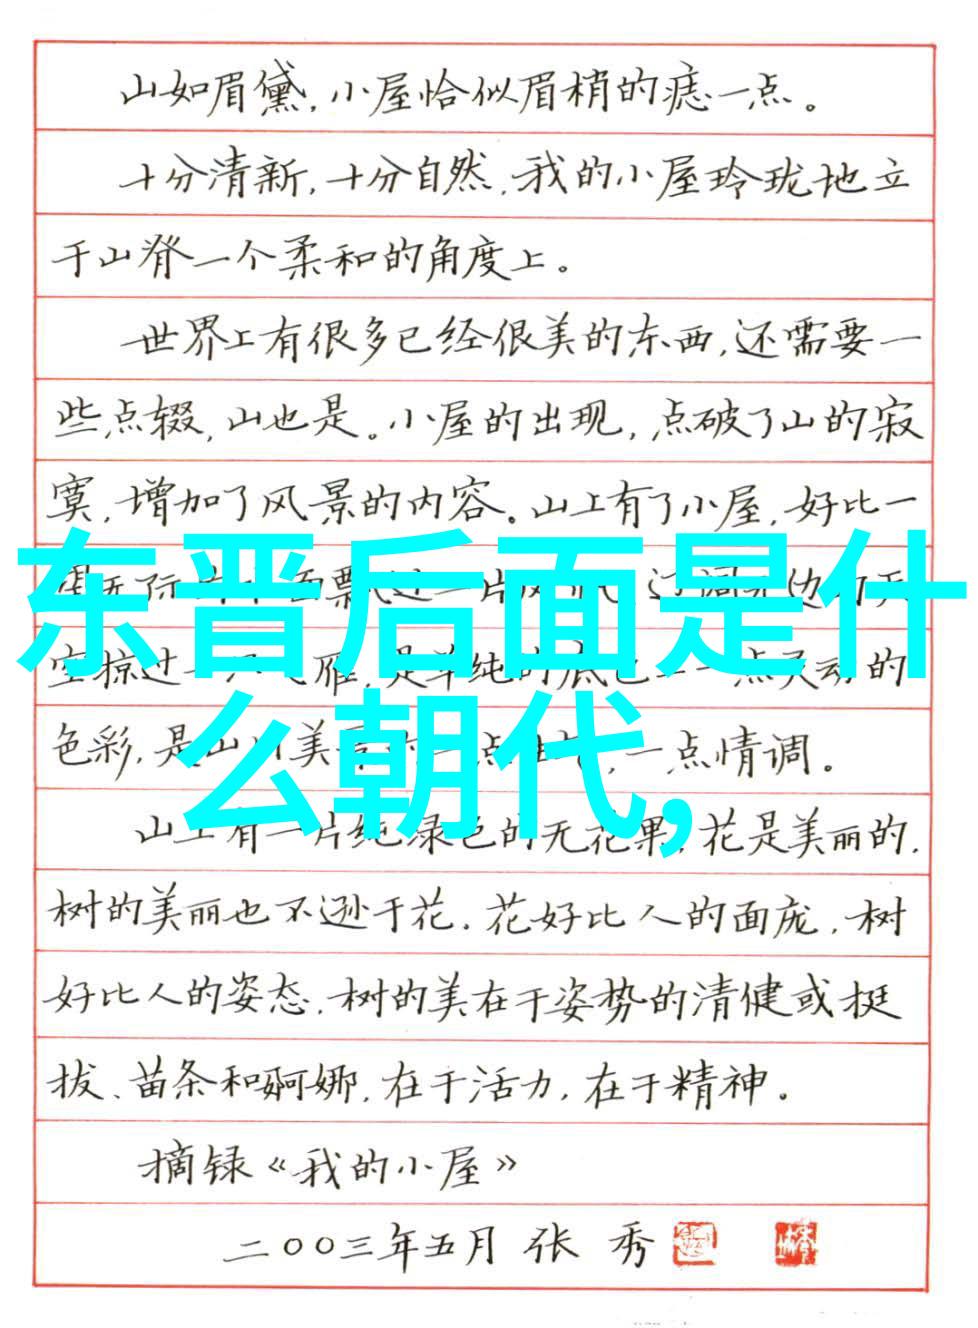 山如眉黛，小屋恰似眉梢的痣一点。
十分清新，十分自然，我的小屋玲珑地立
于山脊一个柔和的角度上。
世界上有很多已经很美的东西，还需要一
些点缀，山也是。小屋的出现，点破了山的寂
寞，增加了风景的内容。山上有了小屋，好比一
东晋后面是什
空掠过一 雁，是单纯的底色上一点灵动的
么朝代，
色彩，是山川美景 一点情调。
山上有一片纯绿色的无花果，花是美丽的，
树的美丽也不逊于花。花好比人的面庞，树
好比人的姿态。树的美在于姿势的清健或挺
拔、苗条和婀娜，在于活力，在于精神。
摘录《我的小屋》
二〇〇三年五月 张 秀